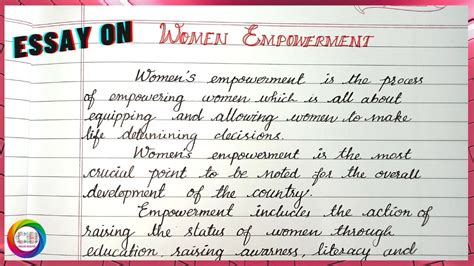 ESSAY ON WOMEN EMPOWERMENT
Women's empowerment is the process
of empowering women which is all about
equipping and allowing women to make
life determining decisions.
Women's empowerment is the most
crucial point to be noted for the overall
development of the country.
Empowerment includes the action of
raising the status of women through
education, raising awarness, literacy and